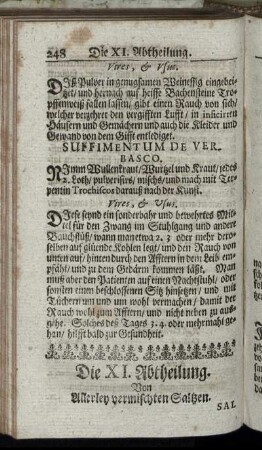 248 Die XI. Abtheilung.
Vires, & Usus.
Diß Pulver in genugsamen Weinessig eingebei-
tzet/ und hernach auf heisse Bachensteine Tro-
pffenweiß fallen lassen/ gibt einen Rauch von sich/
welcher verzehret den vergifften Lufft/ in inficirten
Häusern und Gemächern und auch die Kleider und
Gewand von dem Gifft entlediget.
SUFFIMENTUM DE VER-
BASCO.
Nimm Wullenkraut/ Wurtzel und Kraut/ jedes
2. Loth/ pulverisirs/ mischs/ und mach mit Ter-
pentin Trochiscos darauß nach der Kunst.
Vires, & Usus.
Diese seynd ein sonderbahr und bewehrtes Mit-
tel für den Zwang im Stuhlgang und andere
Bauchflüß/ wann man etwa 2. 3 oder mehr der-
selben auf glüente Kohlen legt/ und den Rauch von
unten auf/ hinten durch den Afftern in den Leib em-
pfäht/ und zu dem Gedärm kommen läßt. Man
muß aber den Patienten auf einen Nachtstuhl/ oder
sonsten einen beschlossenen Sitz hinsetzen/ und mit
Tüchern um und um wohl vermachen/ damit der
Rauch wohl zum Afftern/ und nicht neben zu aus-
gehe. Solches des Tages 3. 4. oder mehrmahl ge-
than/ hilfft bald zur Gesundheit.
Die XI. Abtheilung.
Von
Allerley vermischten Saltzen.
SAL